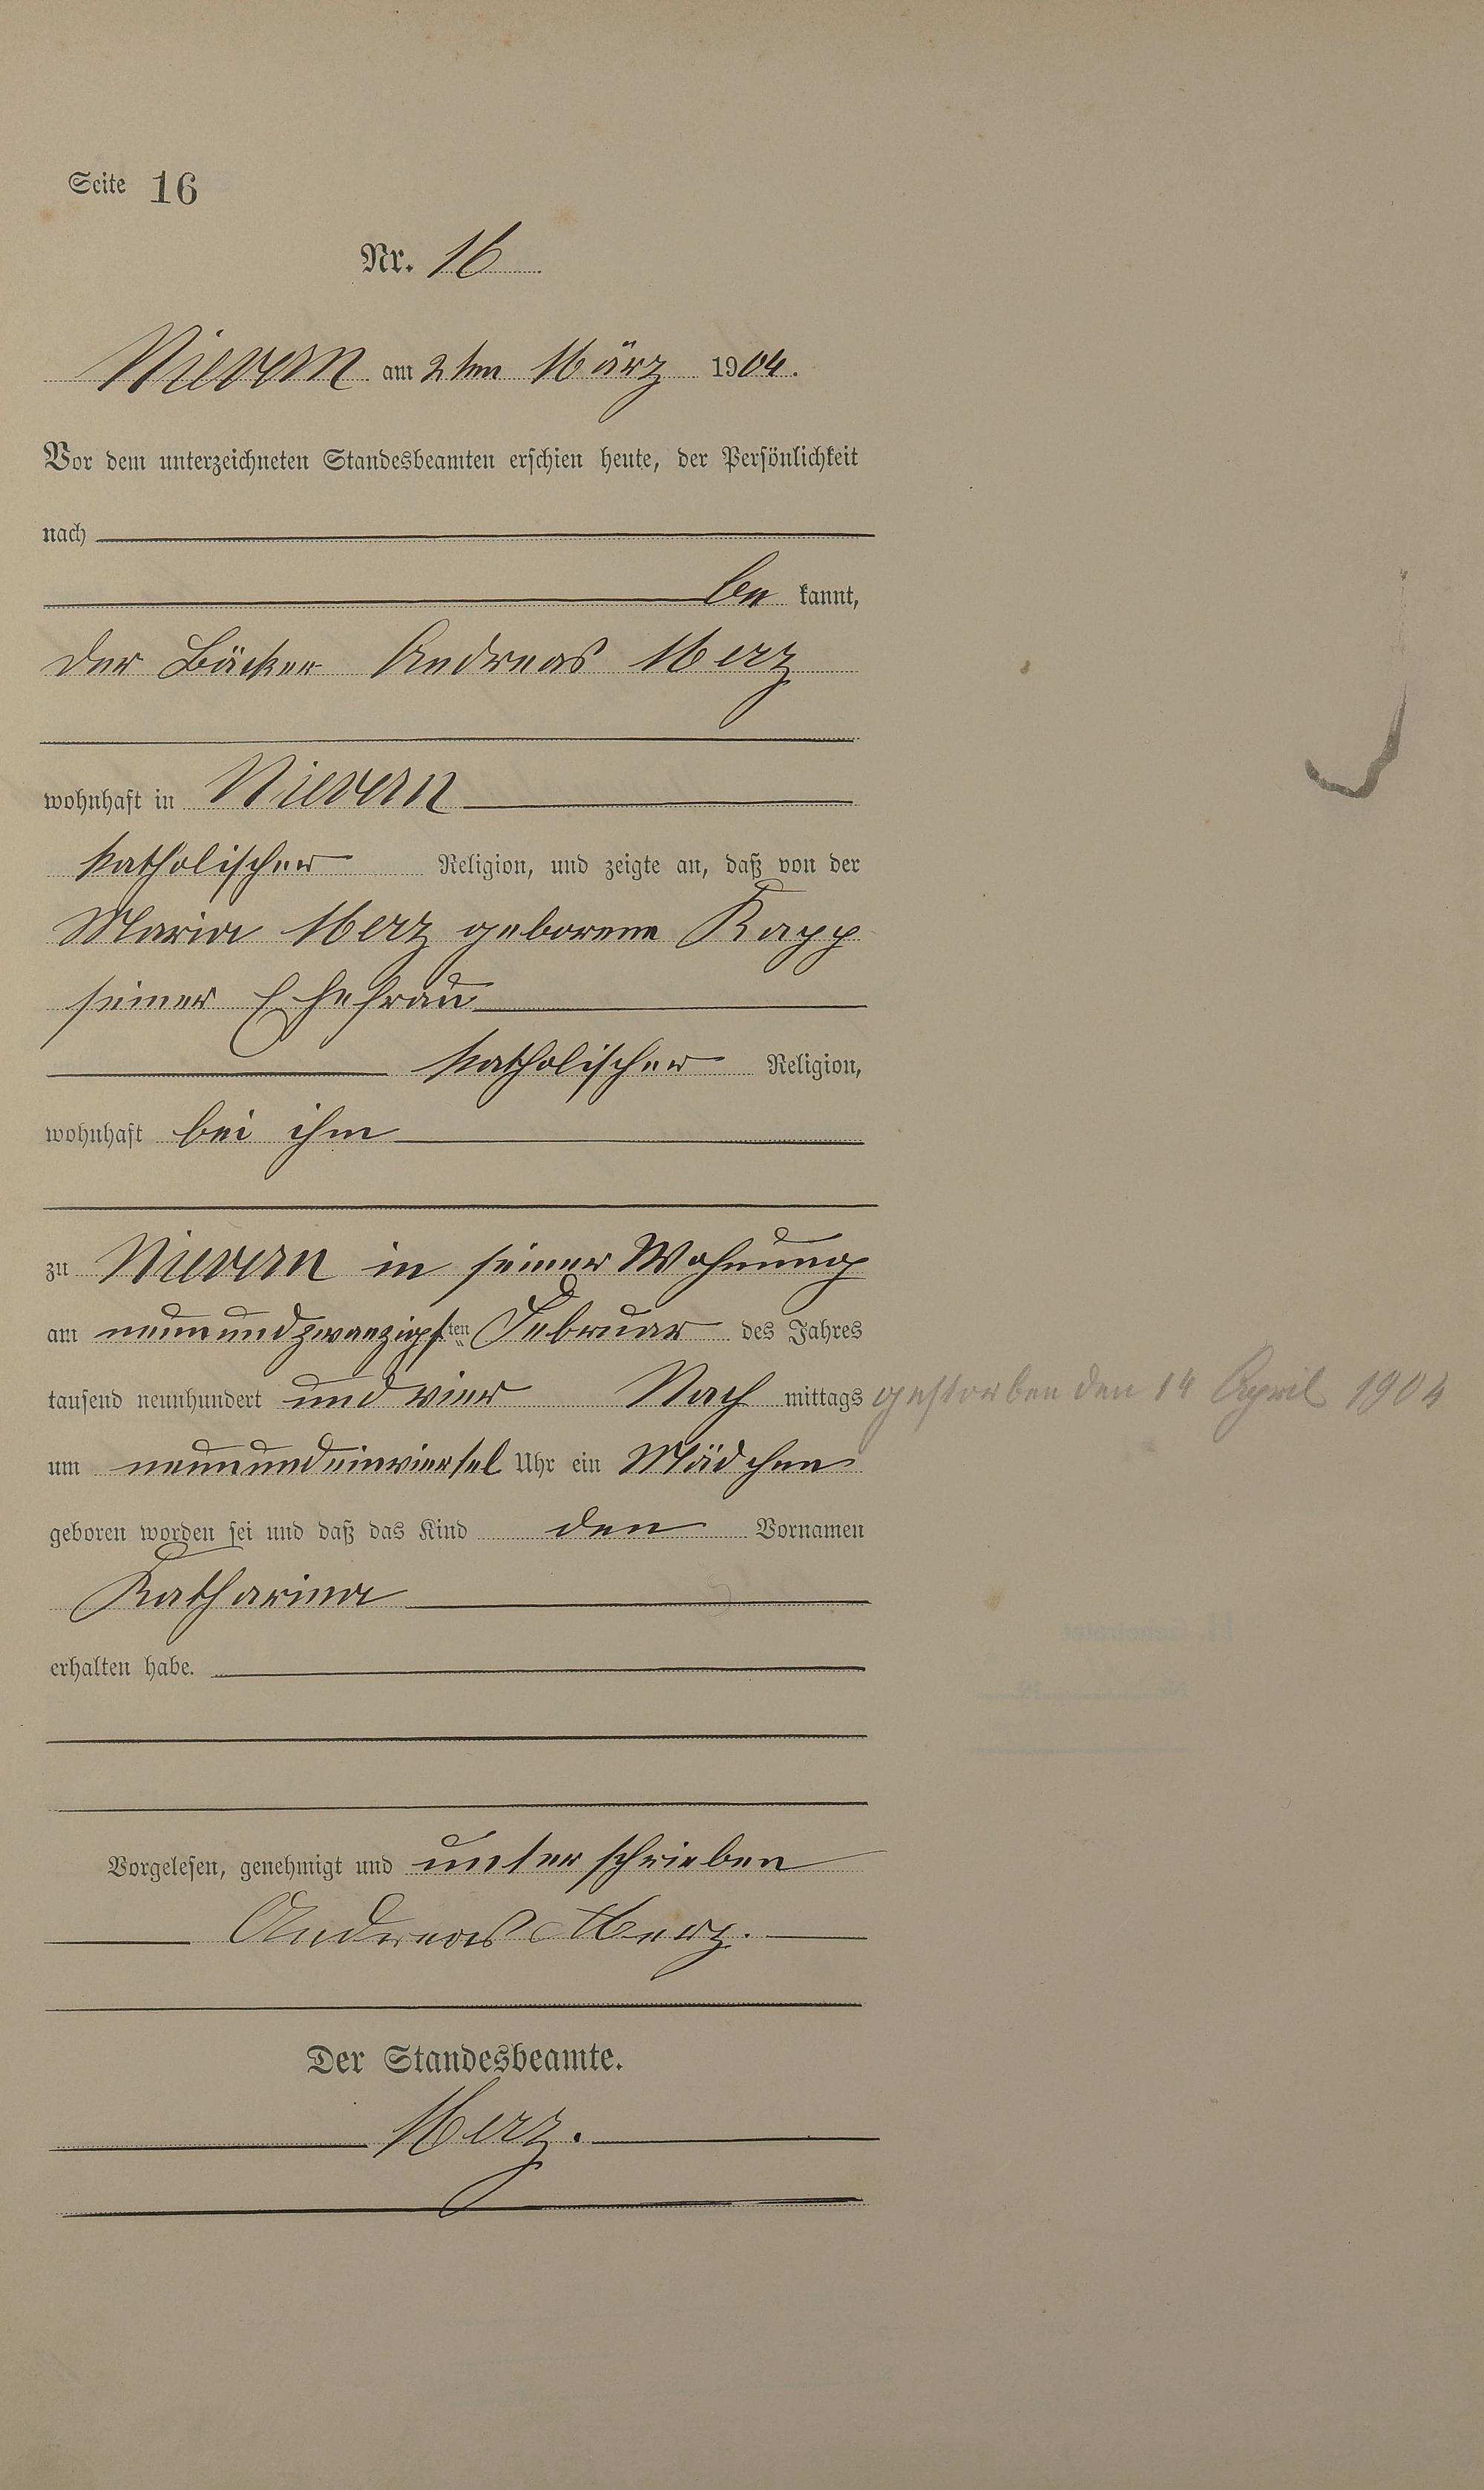 Seite 16
Nr. 16
Nievern am 2ten März 1904.
Vor dem unterzeichneten Standesbeamten erschien heute, der Persönlichkeit
nach
be kannt,
der Bäcker Andreas Merz
wohnhaft in Nievern
katholischer Religion, und zeigte an, daß von der
Maria Merz geborene Kapp
seiner Ehefrau
katholischer Religion,
wohnhaft bei ihm
zu Nievern in seiner Wohnung
am neunundzwanzigsten Februar des Jahres
tausend neunhundert und vier Nach mittags
gestorben den 14 April 1904
um neunundeinviertel Uhr ein Mädchen
geboren worden sei und daß das Kind den Vornamen
Katharina
erhalten habe.
Vorgelesen, genehmigt und unterschrieben
Andreas Merz.
Der Standesbeamte.
Merz.